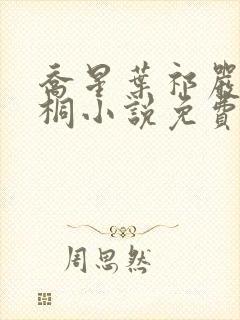 喬星葉祁嚴
桐小說免費
周思然